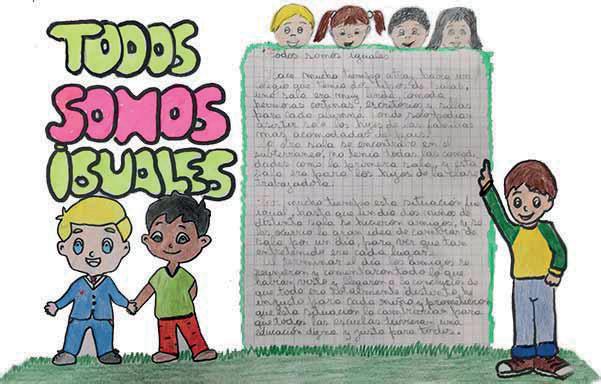 TODOS
SOMOS
iGUALES
Todos somos iguales
Hace mucho tiempo atrás, había un
colegio que tenía dos tipos de salas,
una sala era muy linda, cómoda
personas cortinas, escritorios y sillas
para cada alumno, donde solo podían
asistir solo los hijos de las familias
mas acomodadas del país.
La otra sala se encontraba en el
subterraneo, no tenía todas las comodi
dades como la primera sala, y esta
sala era para los hijos de la clase
trabajadora.
mucho tiempo esta situación fue
igual, hasta que un día dos niños de
distinta sala se hicieron amigos, y se
les ocurrio la gran idea de cambiar de
sala por un día para ver que tan
entretenido era cada lugar.
Al terminar el día los amigos se
reunieron y comentaron todo lo que
habían visto y llegaron a la conclusión de
que todo era totalmente distinto, e
injusto para cada niño y prometieron
que esta situación la cambiarían para
que todas las escuelas tuvieran una
educación digna y justa para todos.